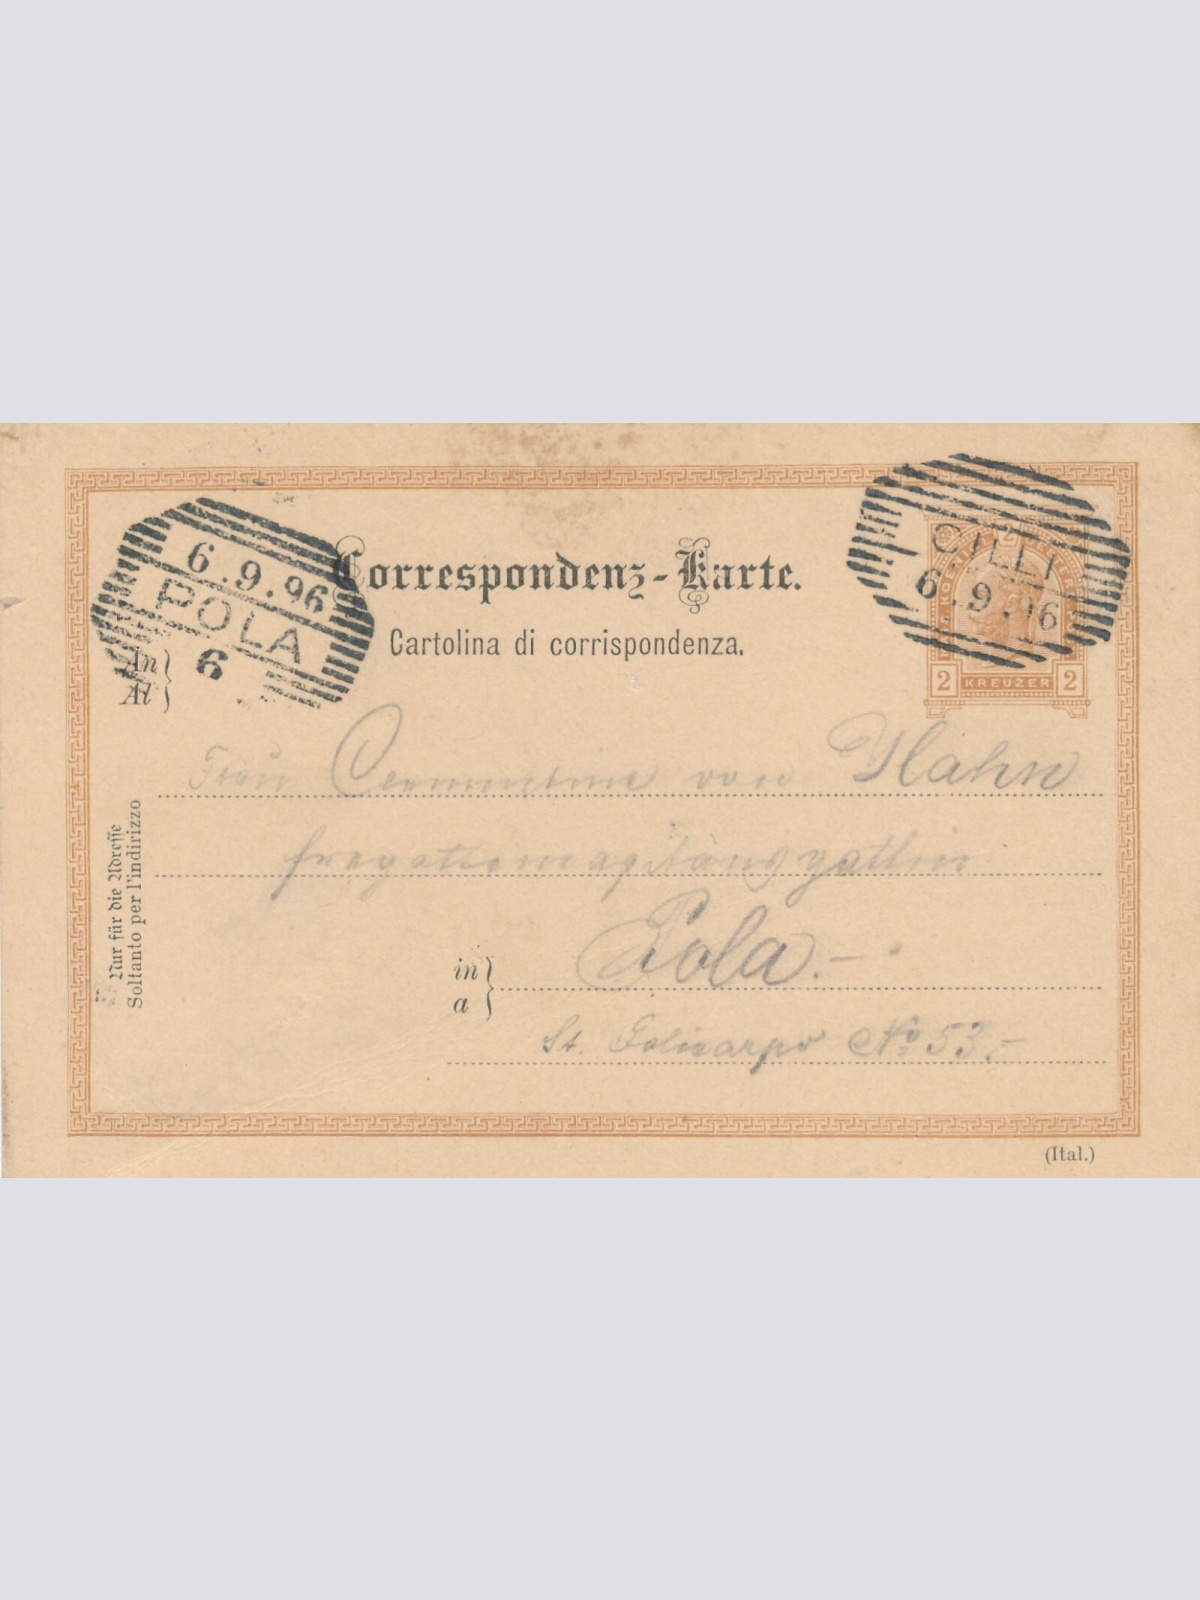 6.9.96
POLA
6
CILLI
6.9.96
2
2 KREUZER 2
Correspondenz-Karte.
Cartolina di corrispondenza.
An
Al
Frau Clementine von Hahn
fregattencapitänsgattin
in
a
Pola.-
St. Policarpo No 53.-
Nur für die Adresse
Soltanto per l'indirizzo
(Ital.)